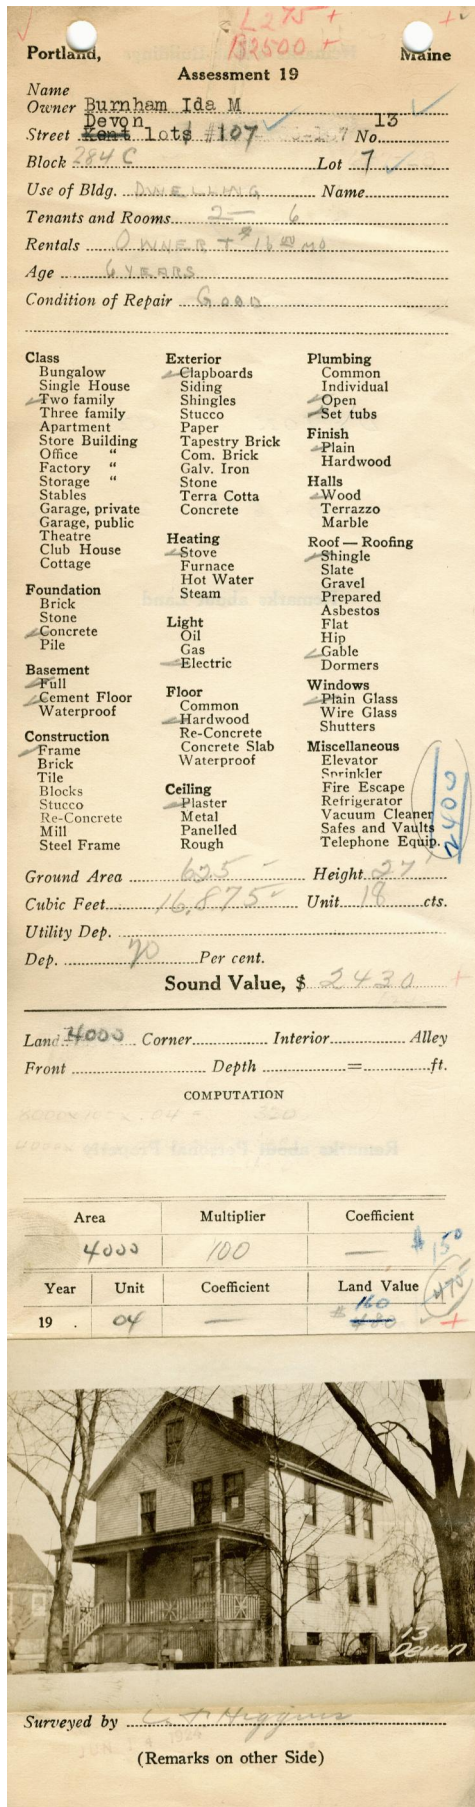 L275 +
B2500 +
Portland, Maine
Assessment 19
Name
Owner Burnham Ida M
Devon 13
Street Kent lots #107 No.
Block 284 C Lot 7
Use of Bldg. DWELLING Name
Tenants and Rooms 2 — 6
Rentals OWNER + $16 00 MO
Age 6 YEARS
Condition of Repair GOOD
Class
Bungalow
Single House
Two family
Three family
Apartment
Store Building
Office "
Factory "
Storage "
Stables
Garage, private
Garage, public
Theatre
Club House
Cottage
Foundation
Brick
Stone
Concrete
Pile
Basement
Full
Cement Floor
Waterproof
Construction
Frame
Brick
Tile
Blocks
Stucco
Re-Concrete
Mill
Steel Frame
Exterior
Clapboards
Siding
Shingles
Stucco
Paper
Tapestry Brick
Com. Brick
Galv. Iron
Stone
Terra Cotta
Concrete
Heating
Stove
Furnace
Hot Water
Steam
Light
Oil
Gas
Electric
Floor
Common
Hardwood
Re-Concrete
Concrete Slab
Waterproof
Ceiling
Plaster
Metal
Panelled
Rough
Plumbing
Common
Individual
Open
Set tubs
Finish
Plain
Hardwood
Halls
Wood
Terrazzo
Marble
Roof — Roofing
Shingle
Slate
Gravel
Prepared
Asbestos
Flat
Hip
Gable
Dormers
Windows
Plain Glass
Wire Glass
Shutters
Miscellaneous
Elevator
Sprinkler
Fire Escape
Refrigerator
Vacuum Cleaner
Safes and Vaults
Telephone Equip.
2400
Ground Area 625 - Height 27'
Cubic Feet 16,875 - Unit 18 cts.
Utility Dep.
Dep. 20 Per cent.
Sound Value, $ 2430 +
Land 4000 Corner Interior Alley
Front Depth = ft.
COMPUTATION
320
Area Multiplier Coefficient
4000 100 — $150
Year Unit Coefficient Land Value
160
19 . 04 — $ 480 +
13
Devon
Surveyed by Higgins
(Remarks on other Side)